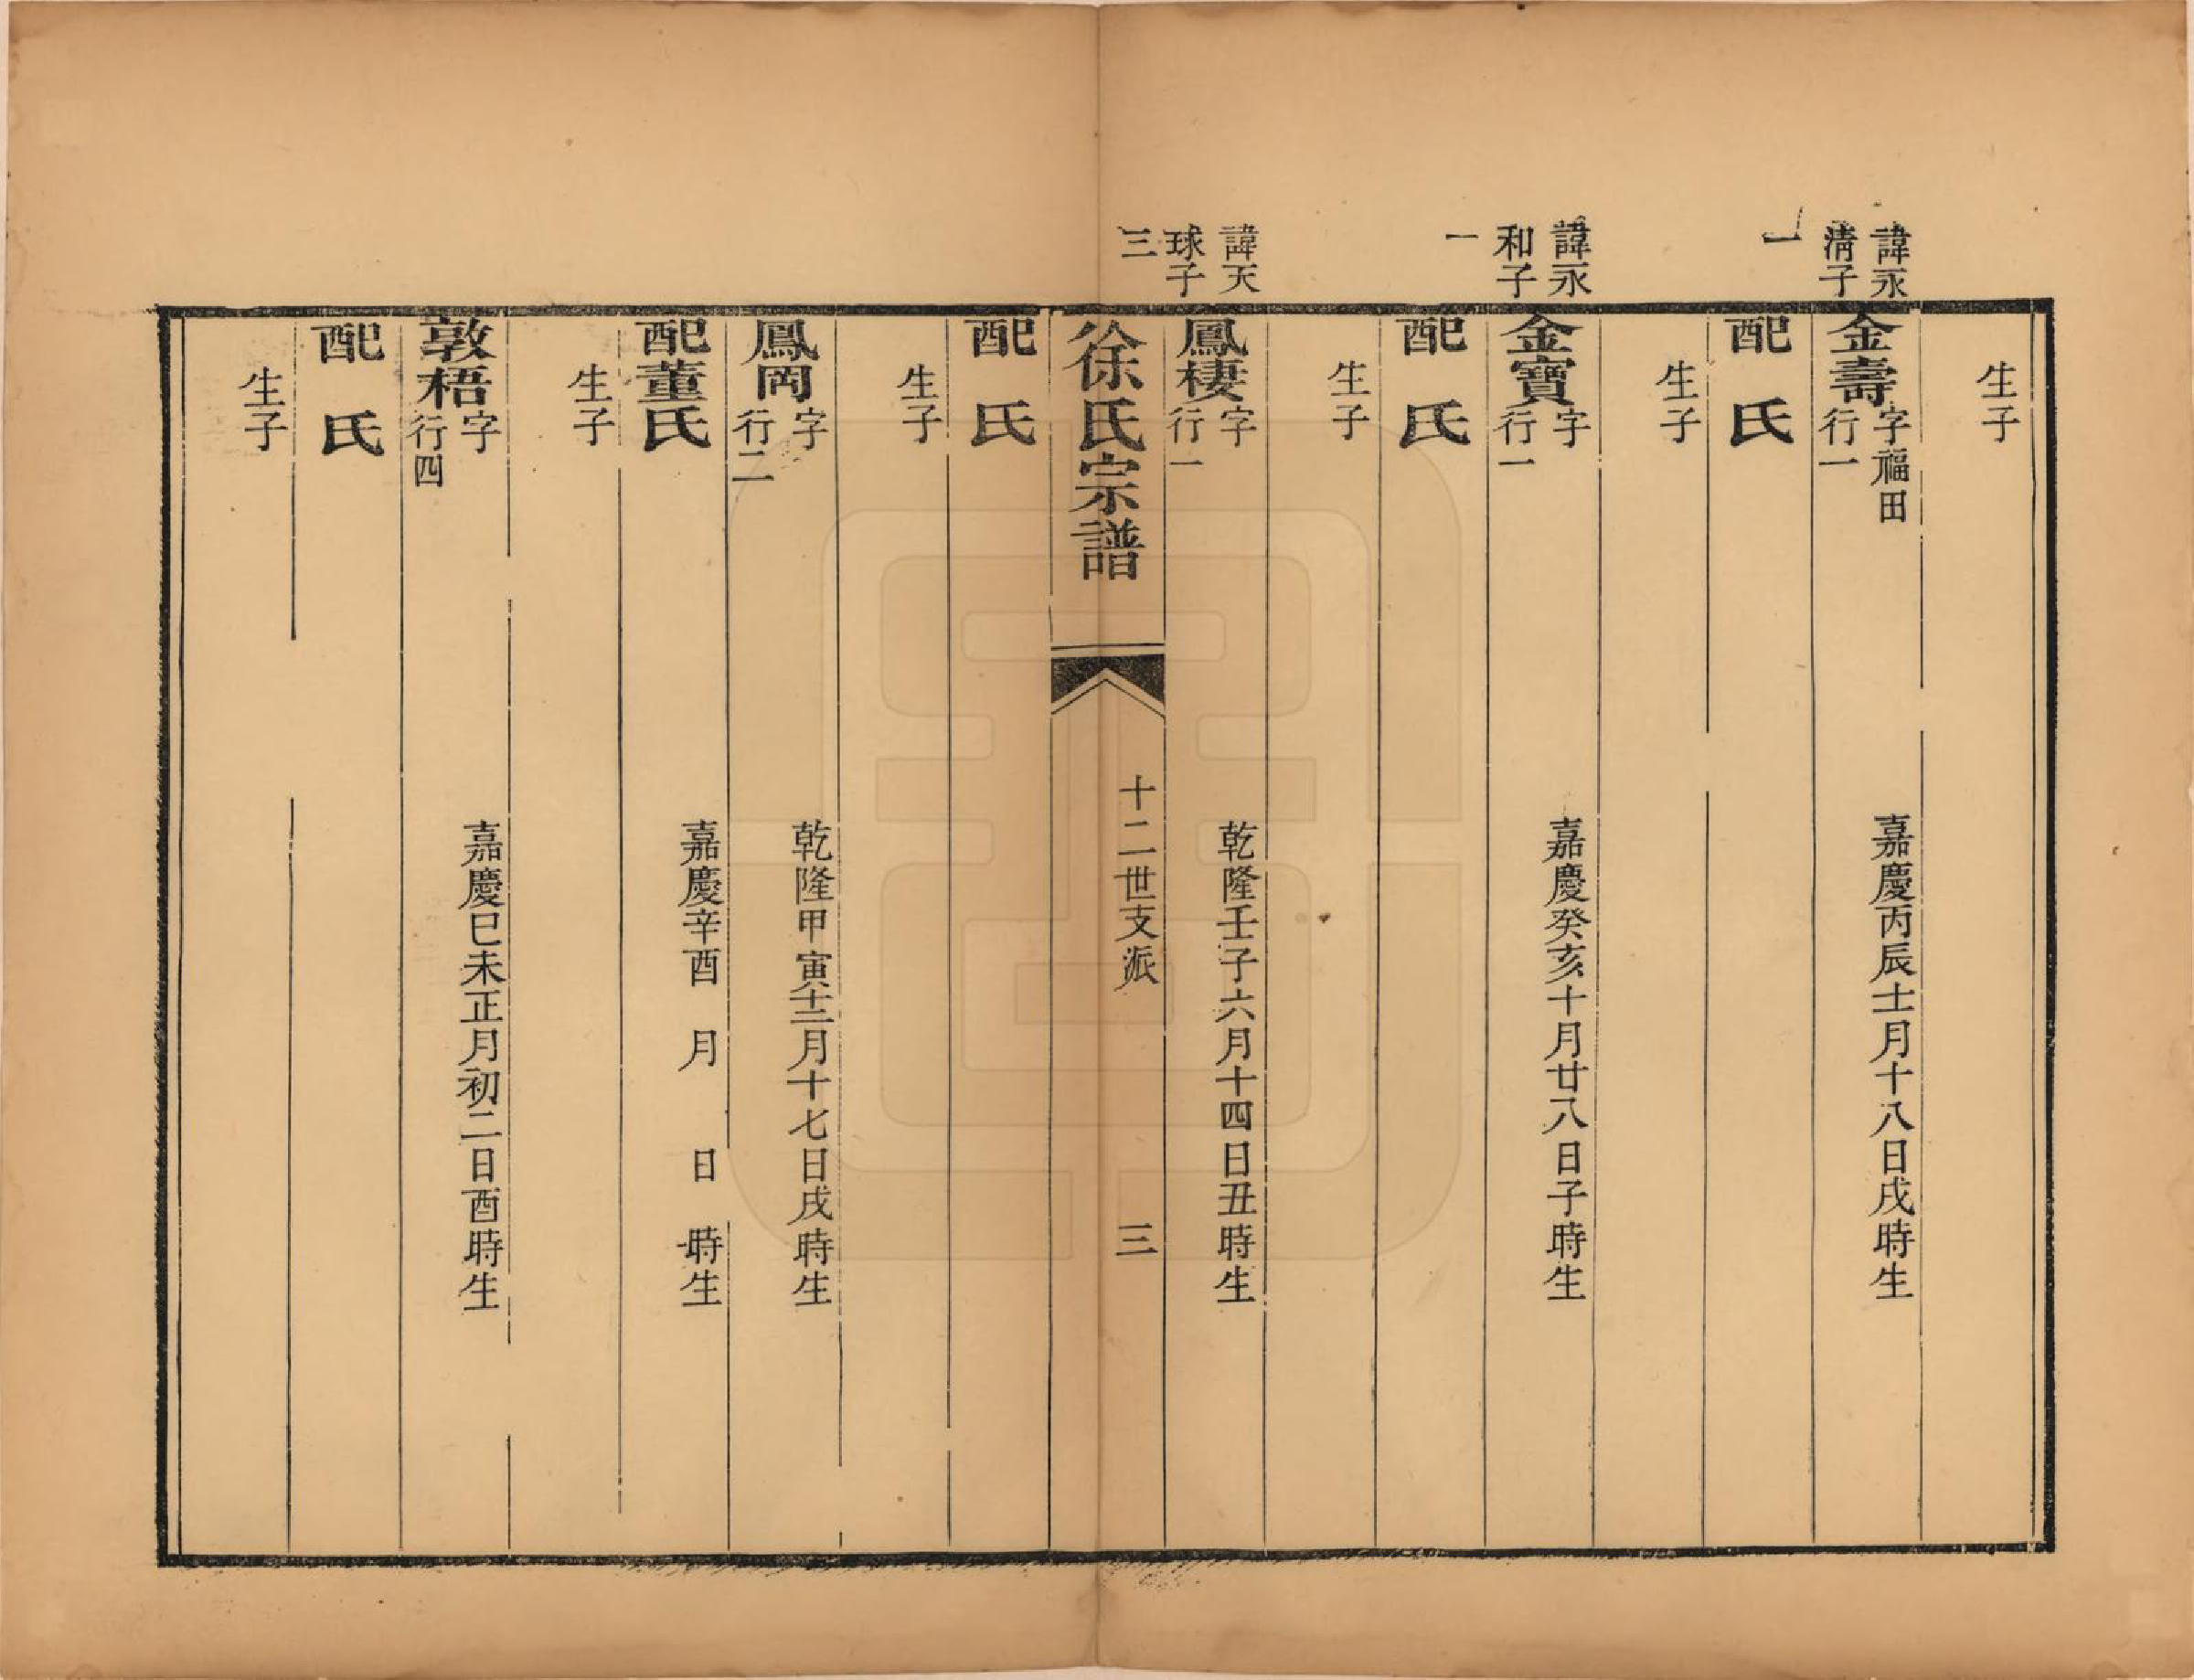 生子
諱永
清子
一
金壽
字福田
行一
嘉慶丙辰十一月十八日戌時生
配 氏
生子
諱永
和子
一
金寶
字
行一
嘉慶癸亥十月廿八日子時生
配 氏
生子
諱天
球子
三
鳳棲
字
行一
乾隆壬子六月十四日丑時生
徐氏宗譜
十二世支派
三
配 氏
生子
鳳岡
字
行二
乾隆甲寅十二月十七日戌時生
配董氏
嘉慶辛酉 月 日 時生
生子
敦梧
字
行四
嘉慶巳未正月初二日酉時生
配 氏
生子